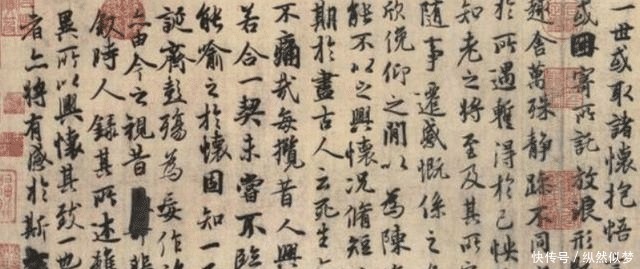 一世或取諸懷抱悟
或因寄所託放浪形
趣舍萬殊靜躁不同
於所遇暫得於己怏
知老之將至及其所
隨事遷感慨係之
欣俛仰之間以為陳
能不以之興懷況脩短
期於盡古人云死生
不痛哉每攬昔人興
若合一契未嘗不臨
能喻之於懷固知一
誕齊彭殤為妄作
亦由今之視昔
敘時人錄其所述雖
異所以興懷其致一也
者亦將有感於斯
快传号 / 纵然似梦